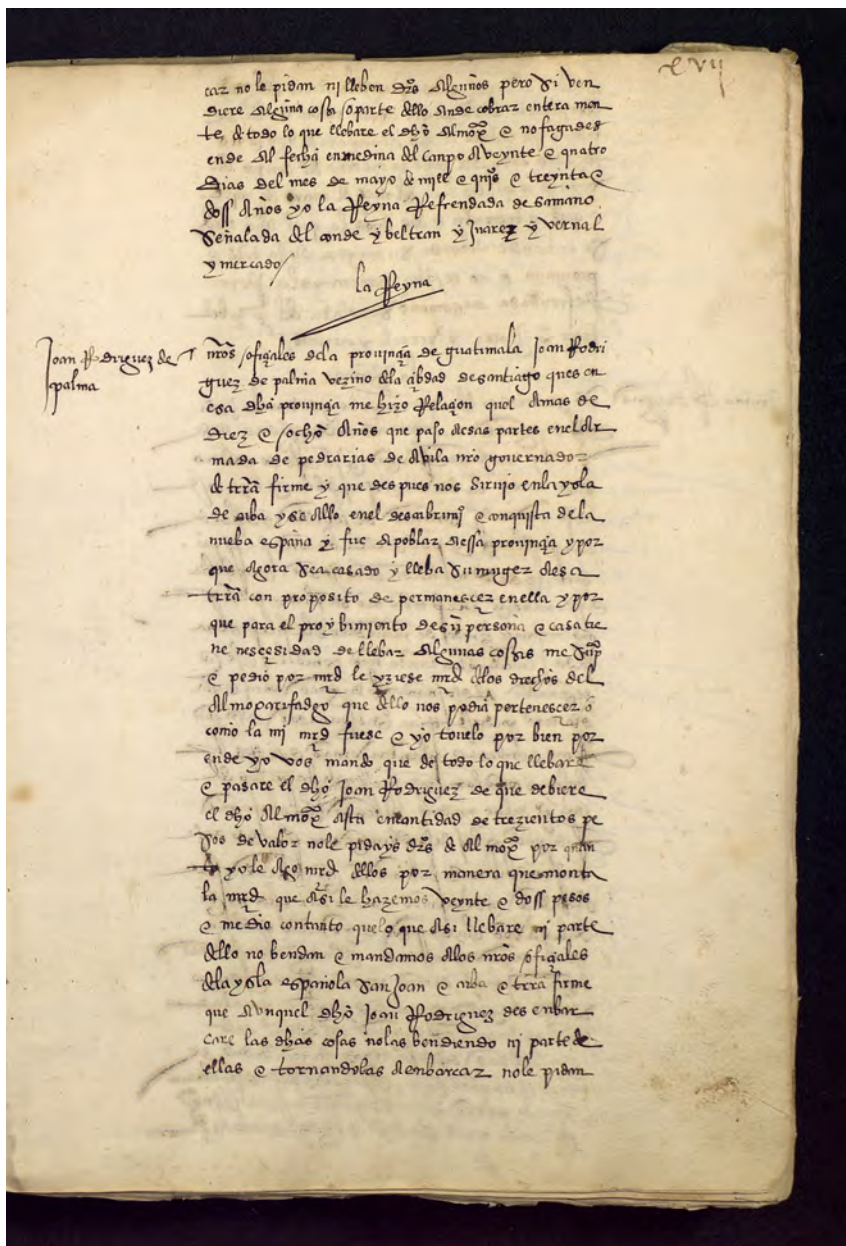 xvij
car no le pidan nj lleben drōs algunos pero si ven
diere alguna cosa o parte dello ande cobrar entera men
te de todo lo que llebare el dhō almoxē e no fagades
ende al fecha en medina del canpo a veynte e quatro
dias del mes de mayo de mill e qujs e treynta e
doss años yo la Reyna Refrendada de samano
señalada del conde y beltran y juarez y vernal
y mercado
la Reyna
Joan Rodriguez de
palma
nrōs ofiçiales dela provinçia de guatimala Joan Rodri
guez de palma vezino dela çibdad de santiago ques en
esa dhā provinçia me hizo Relaçion quel a mas de
diez e ocho años que paso a esas partes enel ar
mada de pedrarias de avila nrō governador
de trrā firme y que despues nos sirvio enla ysla
de cuba y se allo enel descubrimjº e conquista dela
nueba españa y fue a poblar a essa provinçia y por
que agora sea casado y lleba su muger a esa
trrā con proposito de permanescer enella y por
que para el proybimiento de su persona e casa tie
ne nescesidad de llebar algunas cosas me supᶜᵒ
e pedio por mrd le yziese mrd delos drechos del
almoxarifadgo que dello nos podia pertenescer o
como la mj mrd fuese e yo tovelo por bien por
ende yo vos mando que de todo lo que llebare
e pasare el dhō Joan Rodriguez de que debiere
el dhō almoxē asta en cantidad de trezientos pe
sos de valor no le pidays drōs de almoxē por quan
to yo le ago mrd dellos por manera que monta
la mrd que asi le hazemos veynte e doss pesos
e medio con tanto quelo que asi llebare nj parte
dello no bendan e mandamos alos nrōs ofiçiales
dela ysla española san Joan e cuba e trrā firme
que aunquel dhō Joan Rodriguez desenbar
care las dhās cosas no las bendiendo nj parte de
ellas e tornandolas a enbarcar no le pidan